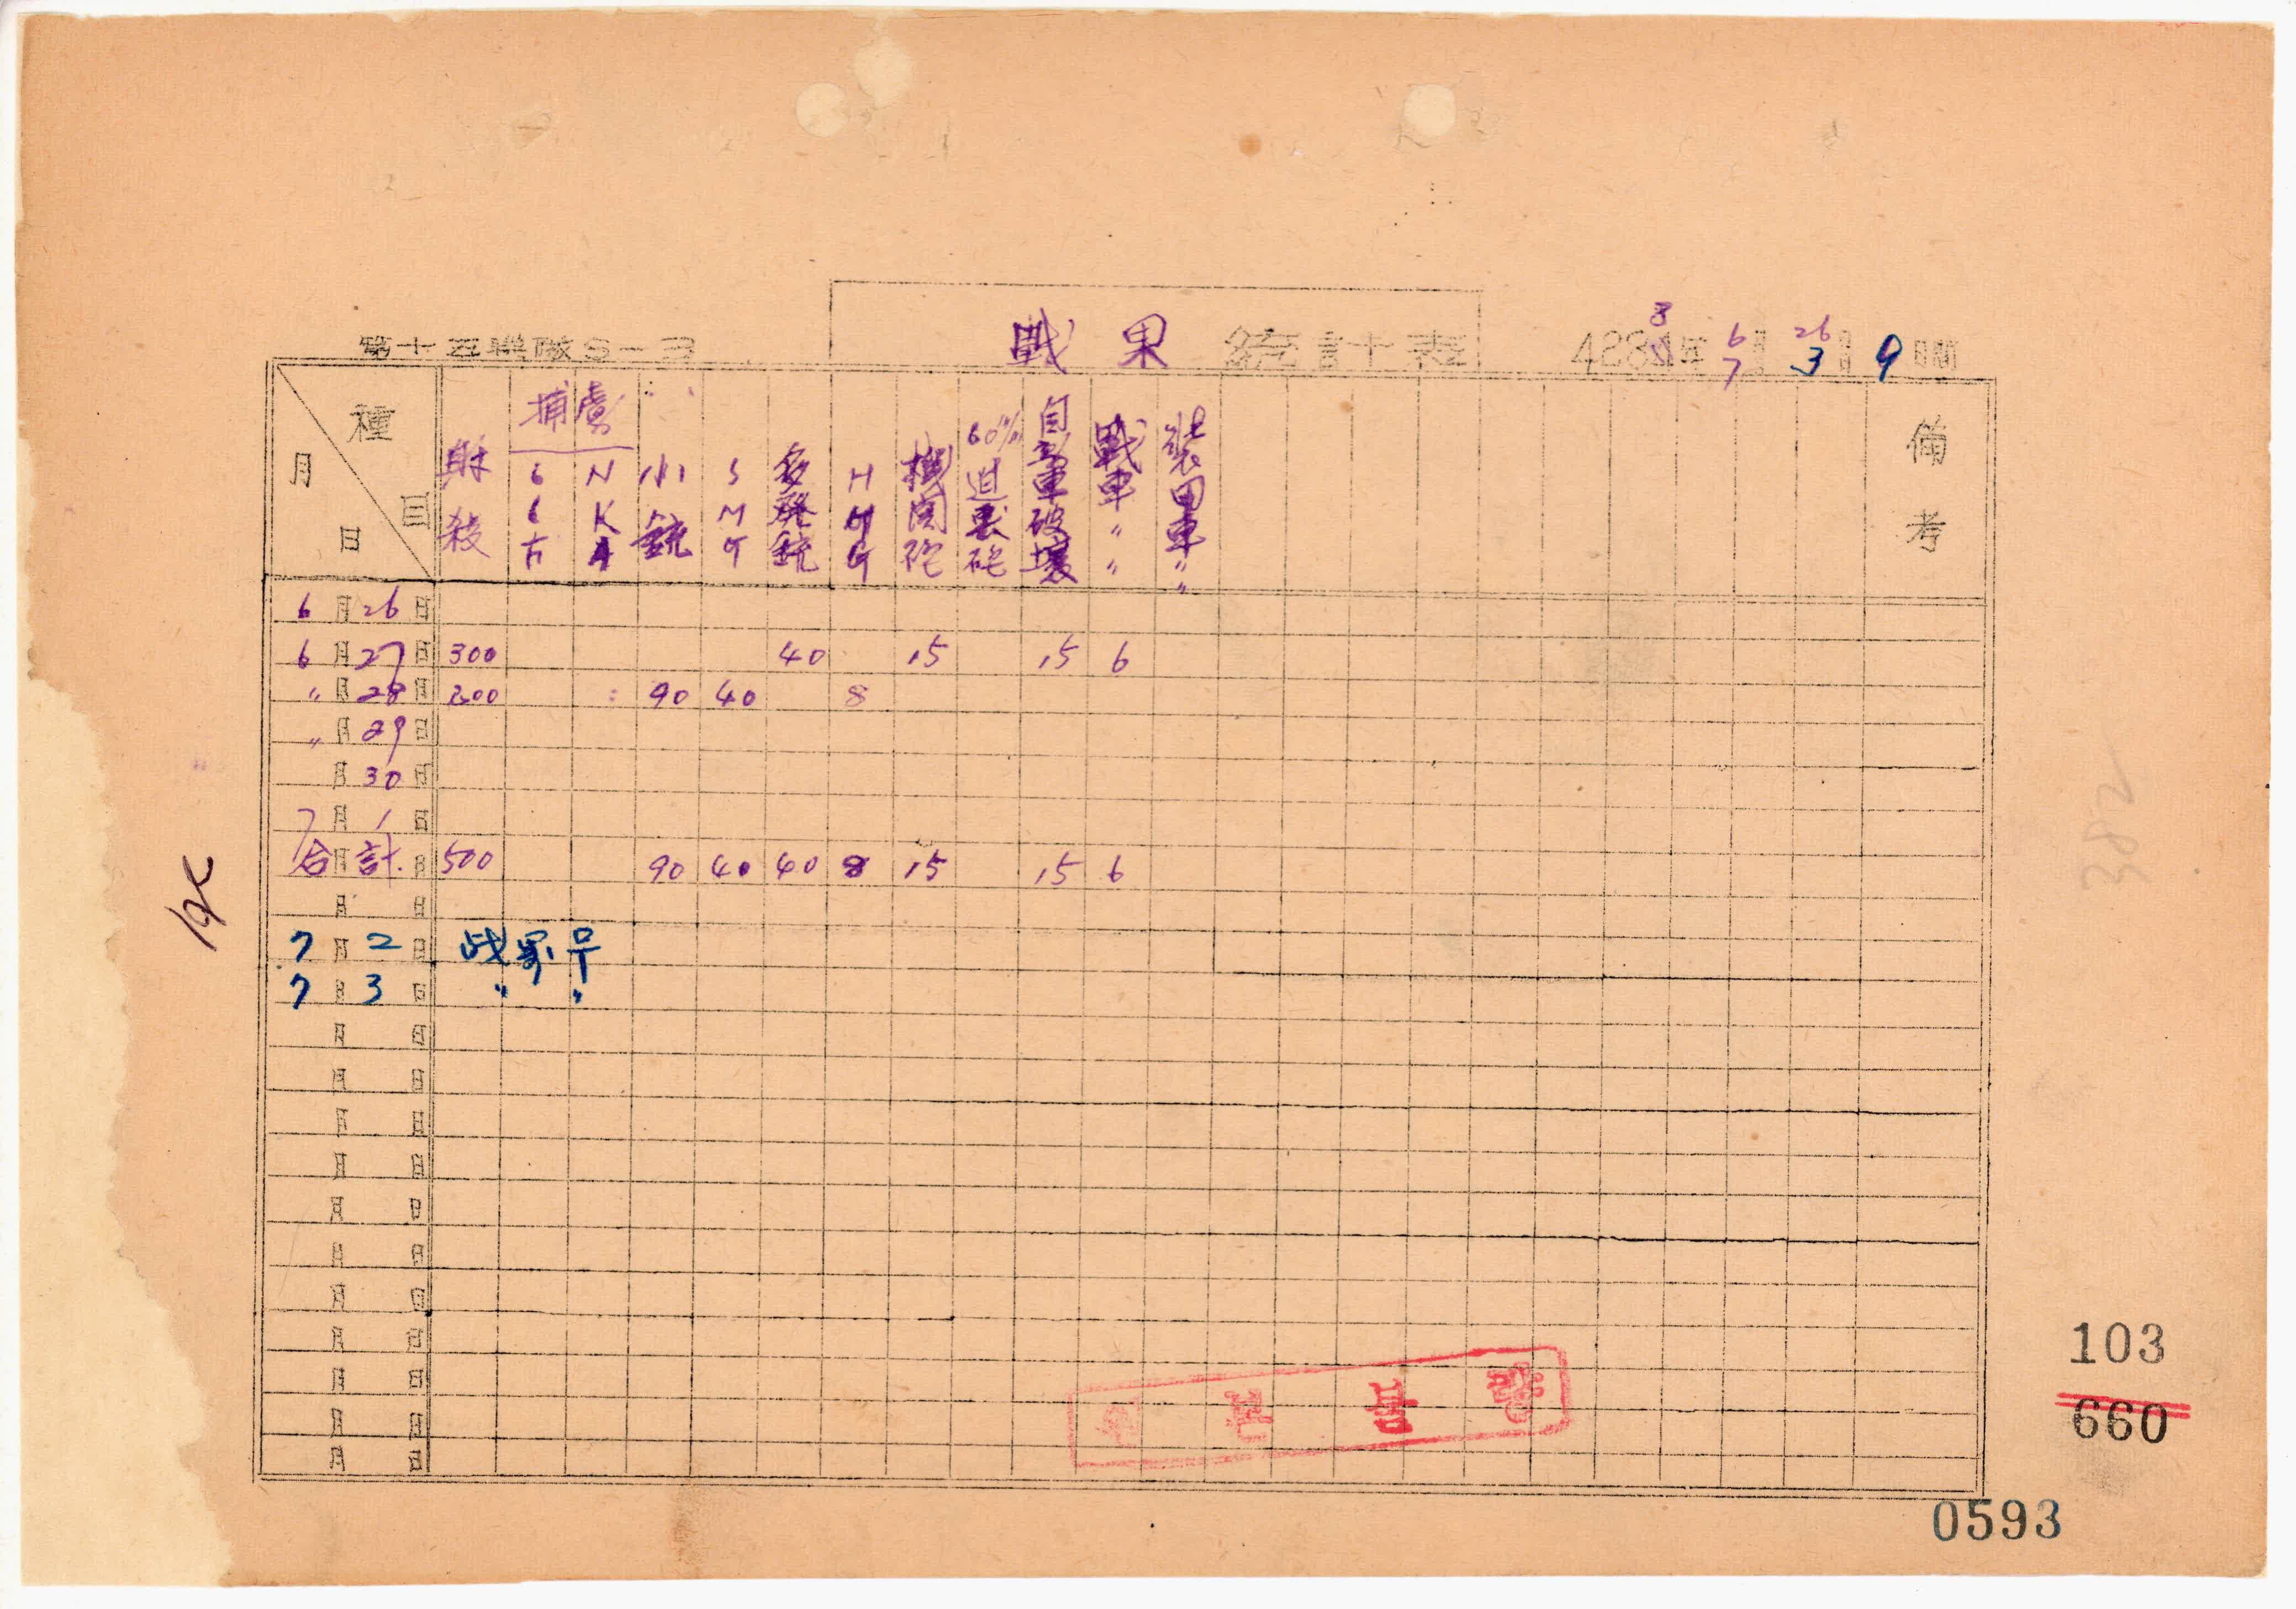 第十五聯隊S-3
戰果 統計表
428 年 月 日 時
3 6 26
7 3 9
種 月 日
射殺 捕虜 小銃 SMG 多発銃 HMG 機関砲 60% 迫撃砲 自動車破壊 戰車〃〃 装甲車〃〃 備考
NKA
6月26日
6月27日 300 40 15 15 6
〃月28日 200 90 40 8
〃月29日
月30日
7月1日
合計 500 90 40 40 8 15 15 6
月 日
7月2日 战果무
7月3日 〃 〃
月 日
月 日
月 日
月 日
月 日
月 日
月 日
月 日
月 日
月 日
月 日
382
103
660
0593